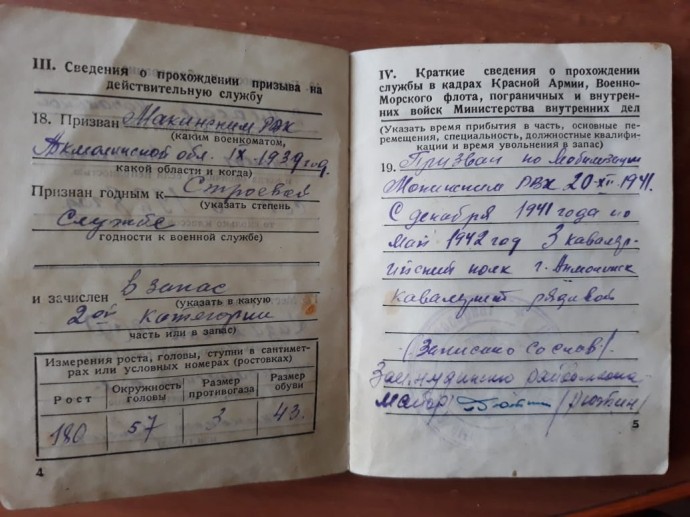 III. Сведения о прохождении призыва на
действительную службу
18. Призван Макинским РВК
(каким военкоматом,
Акмолинской обл. IX-1939 год.
какой области и когда)
Признан годным к Строевой
(Указать степень
службе
годности к военной службе)
и зачислен в запас
(указать в какую
2ой категории
часть или в запас)
Измерения роста, головы, ступни в сантимет-
рах или условных номерах (ростовках)
Рост Окружность головы Размер противогаза Размер обуви
180 57 3 43.
4
IV. Краткие сведения о прохождении
службы в кадрах Красной Армии, Военно-
Морского флота, пограничных и внутрен-
них войск Министерства внутренних дел
(Указать время прибытия в часть, основные пе-
ремещения, специальность, должностные квалифи-
кации и время увольнения в запас)
19. Призван по мобилизации
РВК 20-XII-1941.
С декабря 1941 года по
май 1942 год 3 кавалер-
ийский полк г. Акмолинск
кавалерист рядовой
(Записано со слов).
майор /Дютин/
5